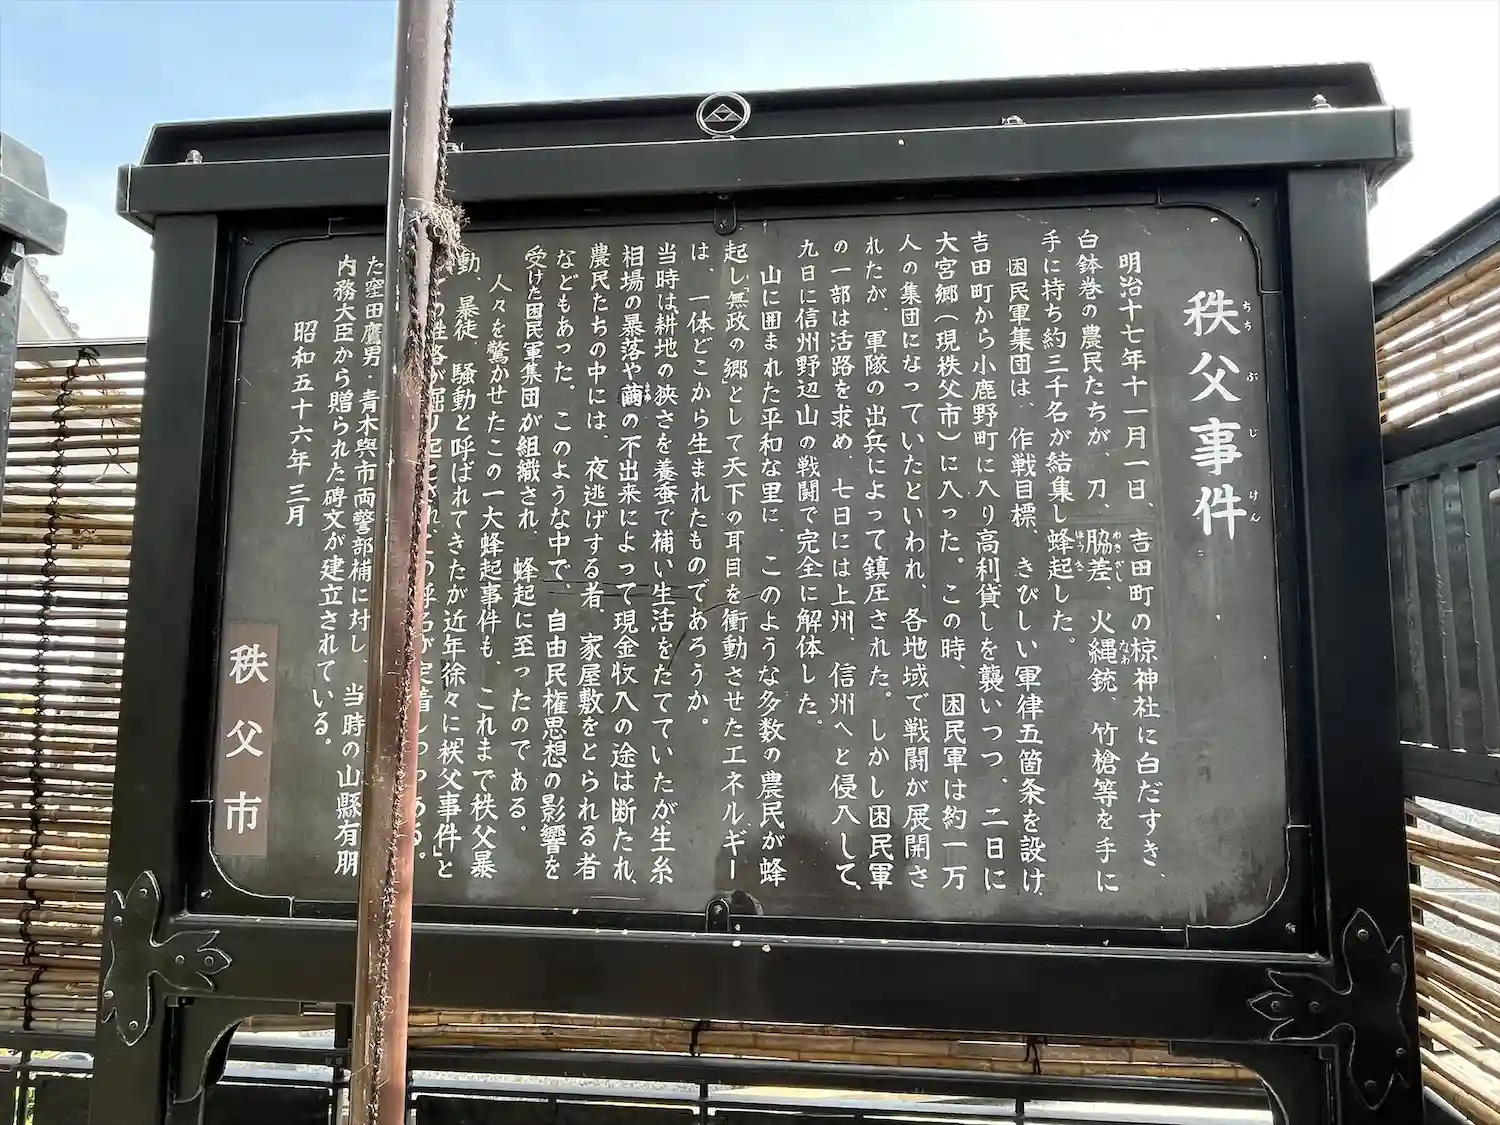 秩父事件
ちちぶじけん
明治十七年十一月一日、吉田町の椋神社に白だすき、
白鉢巻の農民たちが、刀、脇差、火縄銃、竹槍等を手に
わきざし
なわ
手に持ち約三千名が結集し蜂起した。
ほうき
困民軍集団は、作戦目標、きびしい軍律五箇条を設け、
吉田町から小鹿野町に入り高利貸しを襲いつつ、二日に
大宮郷(現秩父市)に入った。この時、困民軍は約一万
人の集団になっていたといわれ、各地域で戦闘が展開さ
れたが、軍隊の出兵によって鎮圧された。しかし困民軍
の一部は活路を求め、七日には上州、信州へと侵入して、
九日に信州野辺山の戦闘で完全に解体した。
山に囲まれた平和な里に、このような多数の農民が蜂
起し「無政の郷」として天下の耳目を衝動させたエネルギー
は、一体どこから生まれたものであろうか。
当時は耕地の狭さを養蚕で補い生活をたてていたが生糸
相場の暴落や繭の不出来によって現金収入の途は断たれ、
まゆ
農民たちの中には、夜逃げする者、家屋敷をとられる者
などもあった。このような中で、自由民権思想の影響を
受けた困民軍集団が組織され、蜂起に至ったのである。
人々を驚かせたこの一大蜂起事件も、これまで秩父暴
動、暴徒、騒動と呼ばれてきたが近年徐々に秩父事件と
掘り起こされ、この呼名が定着しつつある。
た窪田鷹男、青木與市両警部補に対し、当時の山縣有朋
内務大臣から贈られた碑文が建立されている。
昭和五十六年三月
秩父市